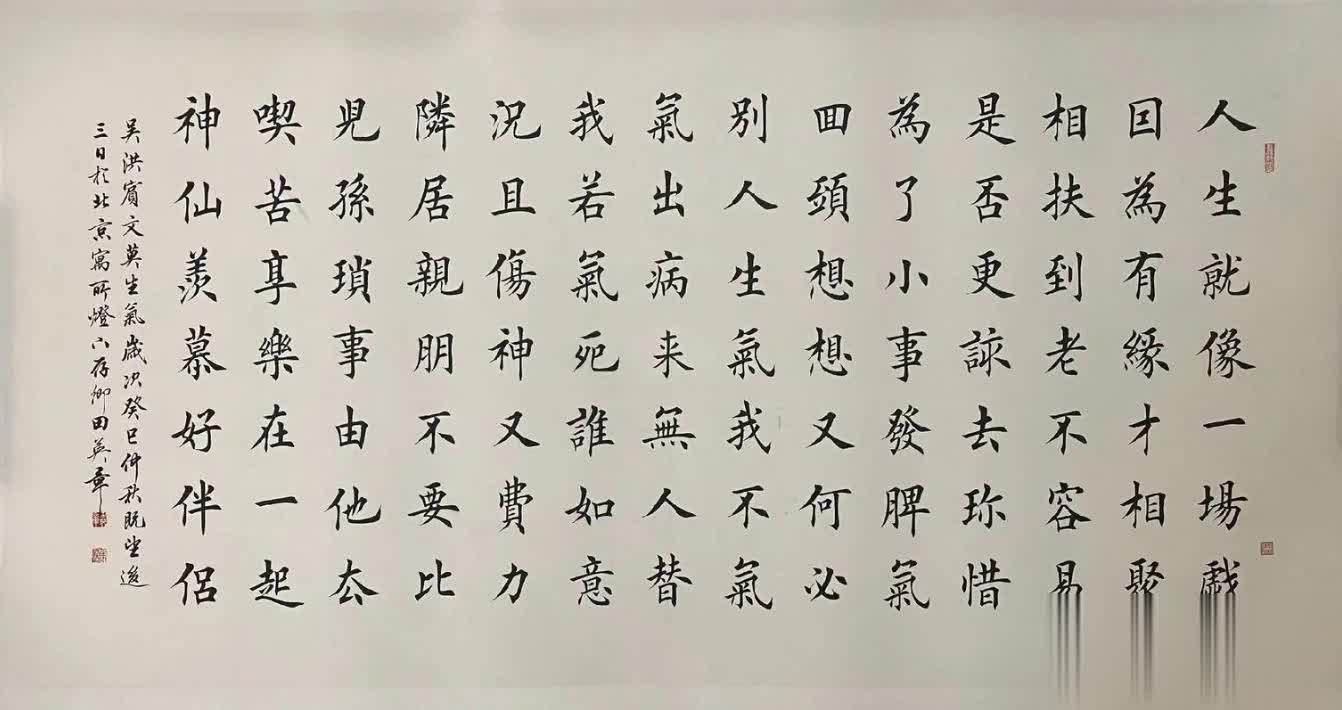 人生就像一場戲
因為有緣才相聚
相扶到老不容易
是否更諒去珎惜
為了小事發脾氣
回頭想想又何必
別人生氣我不氣
氣出病来無人替
我若氣死誰如意
況且傷神又費力
隣居親朋不要比
児孫瑣事由他厺
喫苦享樂在一起
神仙羨慕好伴侶
吴洪賓文莫生氣歲次癸巳仲秋既望後
三日於北京寓所燈下存卿田英章